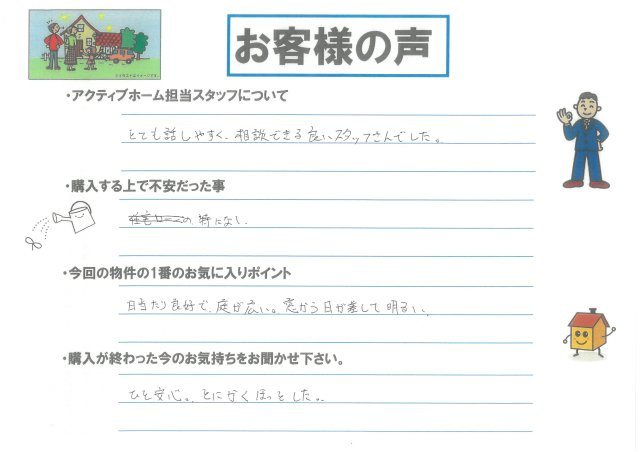 お客様の声
・アクティブホーム担当スタッフについて
とても話しやすく、相談できる良いスタッフさんでした。
・購入する上で不安だった事
特になし
・今回の物件の1番のお気に入りポイント
日当たり良好で、庭が広い。窓から日が差して明るい。
・購入が終わった今のお気持ちをお聞かせ下さい。
ひと安心。とにかくほっとした。